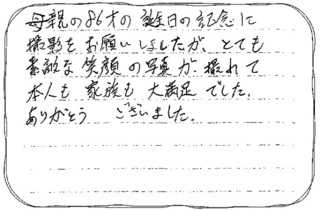 母親の86才の誕生日の記念に
撮影をお願いしましたが、とても
素敵な笑顔の写真が撮れて
本人も家族も大満足でした。
ありがとう ございました。